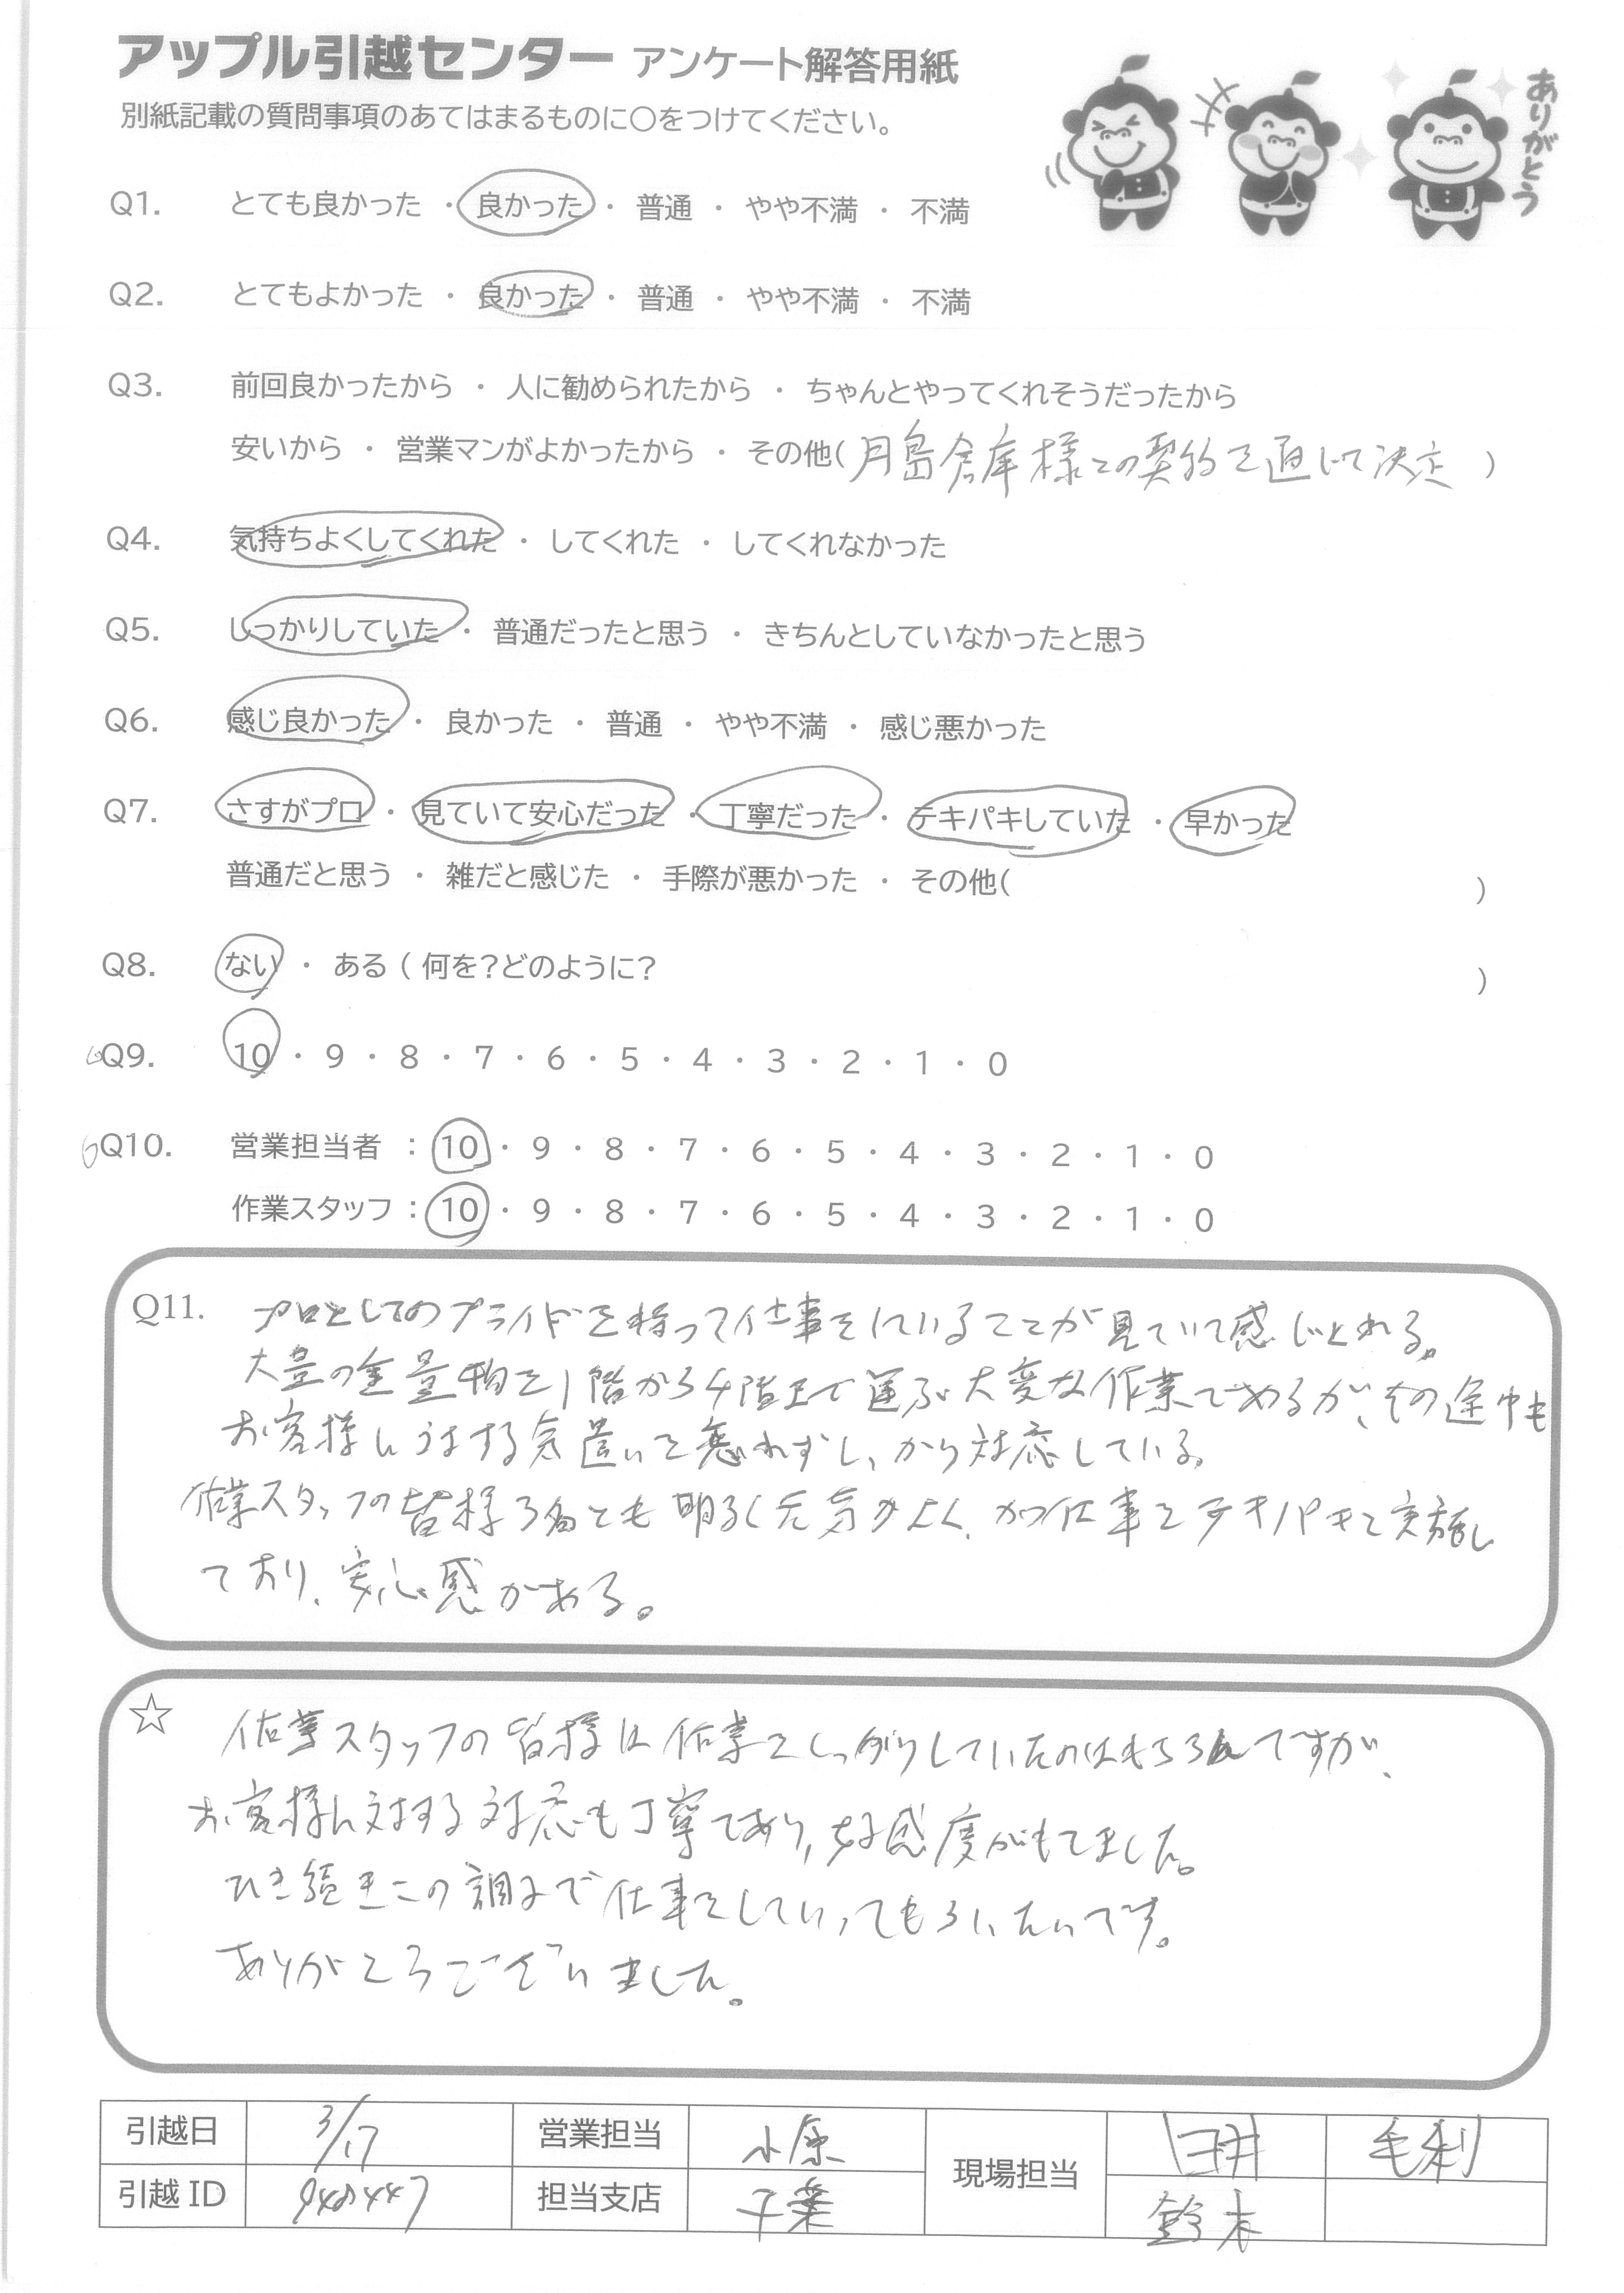 アップル引越センター アンケート解答用紙
別紙記載の質問事項のあてはまるものに○をつけてください。
ありがとう
Q1. とても良かった ・ 良かった ・ 普通 ・ やや不満 ・ 不満
Q2. とてもよかった ・ 良かった ・ 普通 ・ やや不満 ・ 不満
Q3. 前回良かったから ・ 人に勧められたから ・ ちゃんとやってくれそうだったから
安いから ・ 営業マンがよかったから ・ その他(月島倉庫様との契約を通じて決定 )
Q4. 気持ちよくしてくれた ・ してくれた ・ してくれなかった
Q5. しっかりしていた ・ 普通だったと思う ・ きちんとしていなかったと思う
Q6. 感じ良かった ・ 良かった ・ 普通 ・ やや不満 ・ 感じ悪かった
Q7. さすがプロ ・ 見ていて安心だった ・ 丁寧だった ・ テキパキしていた ・ 早かった
普通だと思う ・ 雑だと感じた ・ 手際が悪かった ・ その他( )
Q8. ない ・ ある ( 何を?どのように? )
Q9. 10 ・ 9 ・ 8 ・ 7 ・ 6 ・ 5 ・ 4 ・ 3 ・ 2 ・ 1 ・ 0
Q10. 営業担当者 : 10 ・ 9 ・ 8 ・ 7 ・ 6 ・ 5 ・ 4 ・ 3 ・ 2 ・ 1 ・ 0
作業スタッフ : 10 ・ 9 ・ 8 ・ 7 ・ 6 ・ 5 ・ 4 ・ 3 ・ 2 ・ 1 ・ 0
Q11. プロとしてのプライドを持って仕事をしていることが見ていて感じとれる。
大量の重量物を1階から4階まで運ぶ大変な作業であるが、その途中も
お客様に対する気遣いを忘れずしっかり対応している。
作業スタッフの皆様3名とも明るく元気がよく、かつ仕事をテキパキと実施し
ており、安心感がある。
☆ 作業スタッフの皆様は作業をしっかりしていたのはもちろんですが、
お客様に対する対応も丁寧であり、好感度がもてました。
ひき続きこの調子で仕事をしていってもらいたいです。
ありがとうございました。
引越日 3/17 営業担当 小原 現場担当 臼井 毛利
引越ID 948447 担当支店 千葉 鈴木